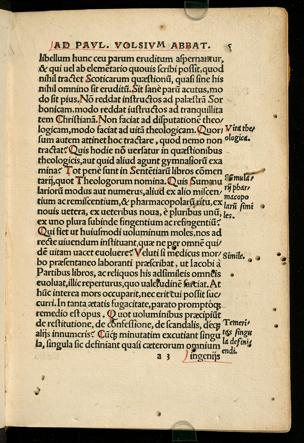 AD PAVL. VOLSIVM ABBAT. 5
libellum hunc ceu parum eruditum aspernātur,
& qui uel ab elementario quouis scribi possit, quod
nihil tractet Scoticarum quæstionū, quasi sine his
nihil omnino sit eruditū. Sit sanè parū acutus, mo
do sit pius. Nō reddat istructos ad palæstrā Sor
bonicam. modo reddat istructos ad tranquillita
tem Christianā. Non faciat ad disputationē theo
logicam, modo faciat ad uitā theologicam. Quor
sum autem attinet hoc tractare, quod nemo non
tractat? Quis hodie nō uersatur in quæstionibus
theologicis, aut quid aliud agunt gymnasiorū exa
mina? Tot penè sunt in Sententiarū libros cōmen
tarij, quot Theologorum nomina. Quis Sumnu
lariorū modus aut numerus, aliud ex alio miscen
tium ac remiscentium, & pharmacopolarū ritu, ex
nouis uetera, ex ueteribus noua, è pluribus unū,
ex uno plura subinde fingentium ac refingentiū?
Qui fiet ut huiusmodi uoluminum moles, nos ad
recte uiuendum instituant, quæ ne per omnē qui
dē uitam uacet euoluere? Veluti si medicus mor
bo præsentaneo laboranti præscribat, ut Iacobi à
Partibus libros, ac reliquos his adsimileis omneis
euoluat, illic reperturus, quo ualetudinē sarciat. At
hūc interea mors occuparit, nec erit cui possit suc
curri. In tanta ætatis fugacitate, parato promptoq;
remedio est opus. Quot voluminibus præcipiūt
de restitutione, de confessione, de scandalis, deq;
alijs innumeris? Cūq; minutatim excutiant singu
la, singula sic definiant quasi cæterorum omnium
a 3 ingenijs
Vita the
ologica.
Sūmula
rij phar
macopo
larū simi
les.
Simile.
Temeri
tas singu
la definiē
endi.